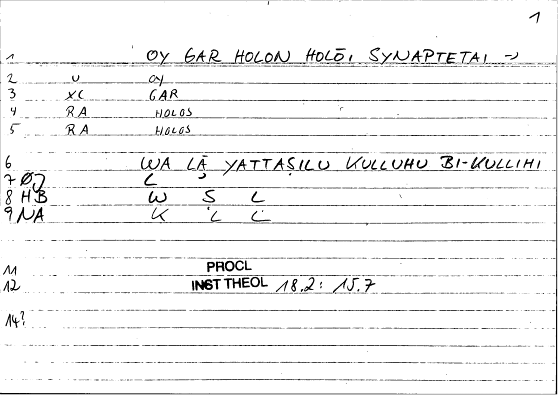 1
1 OY GAR HOLON HOLŌI SYNAPTETAI →
2 U OY
3 XC GAR
4 RA HOLOS
5 RA HOLOS
6 WA LĀ YATTAṢILU KULLUHU BI-KULLIHI
7 L ʾ
8 HB W Ṣ L
9 NA K L L
11 PROCL
12 INST THEOL 18.2: 15.7
14?